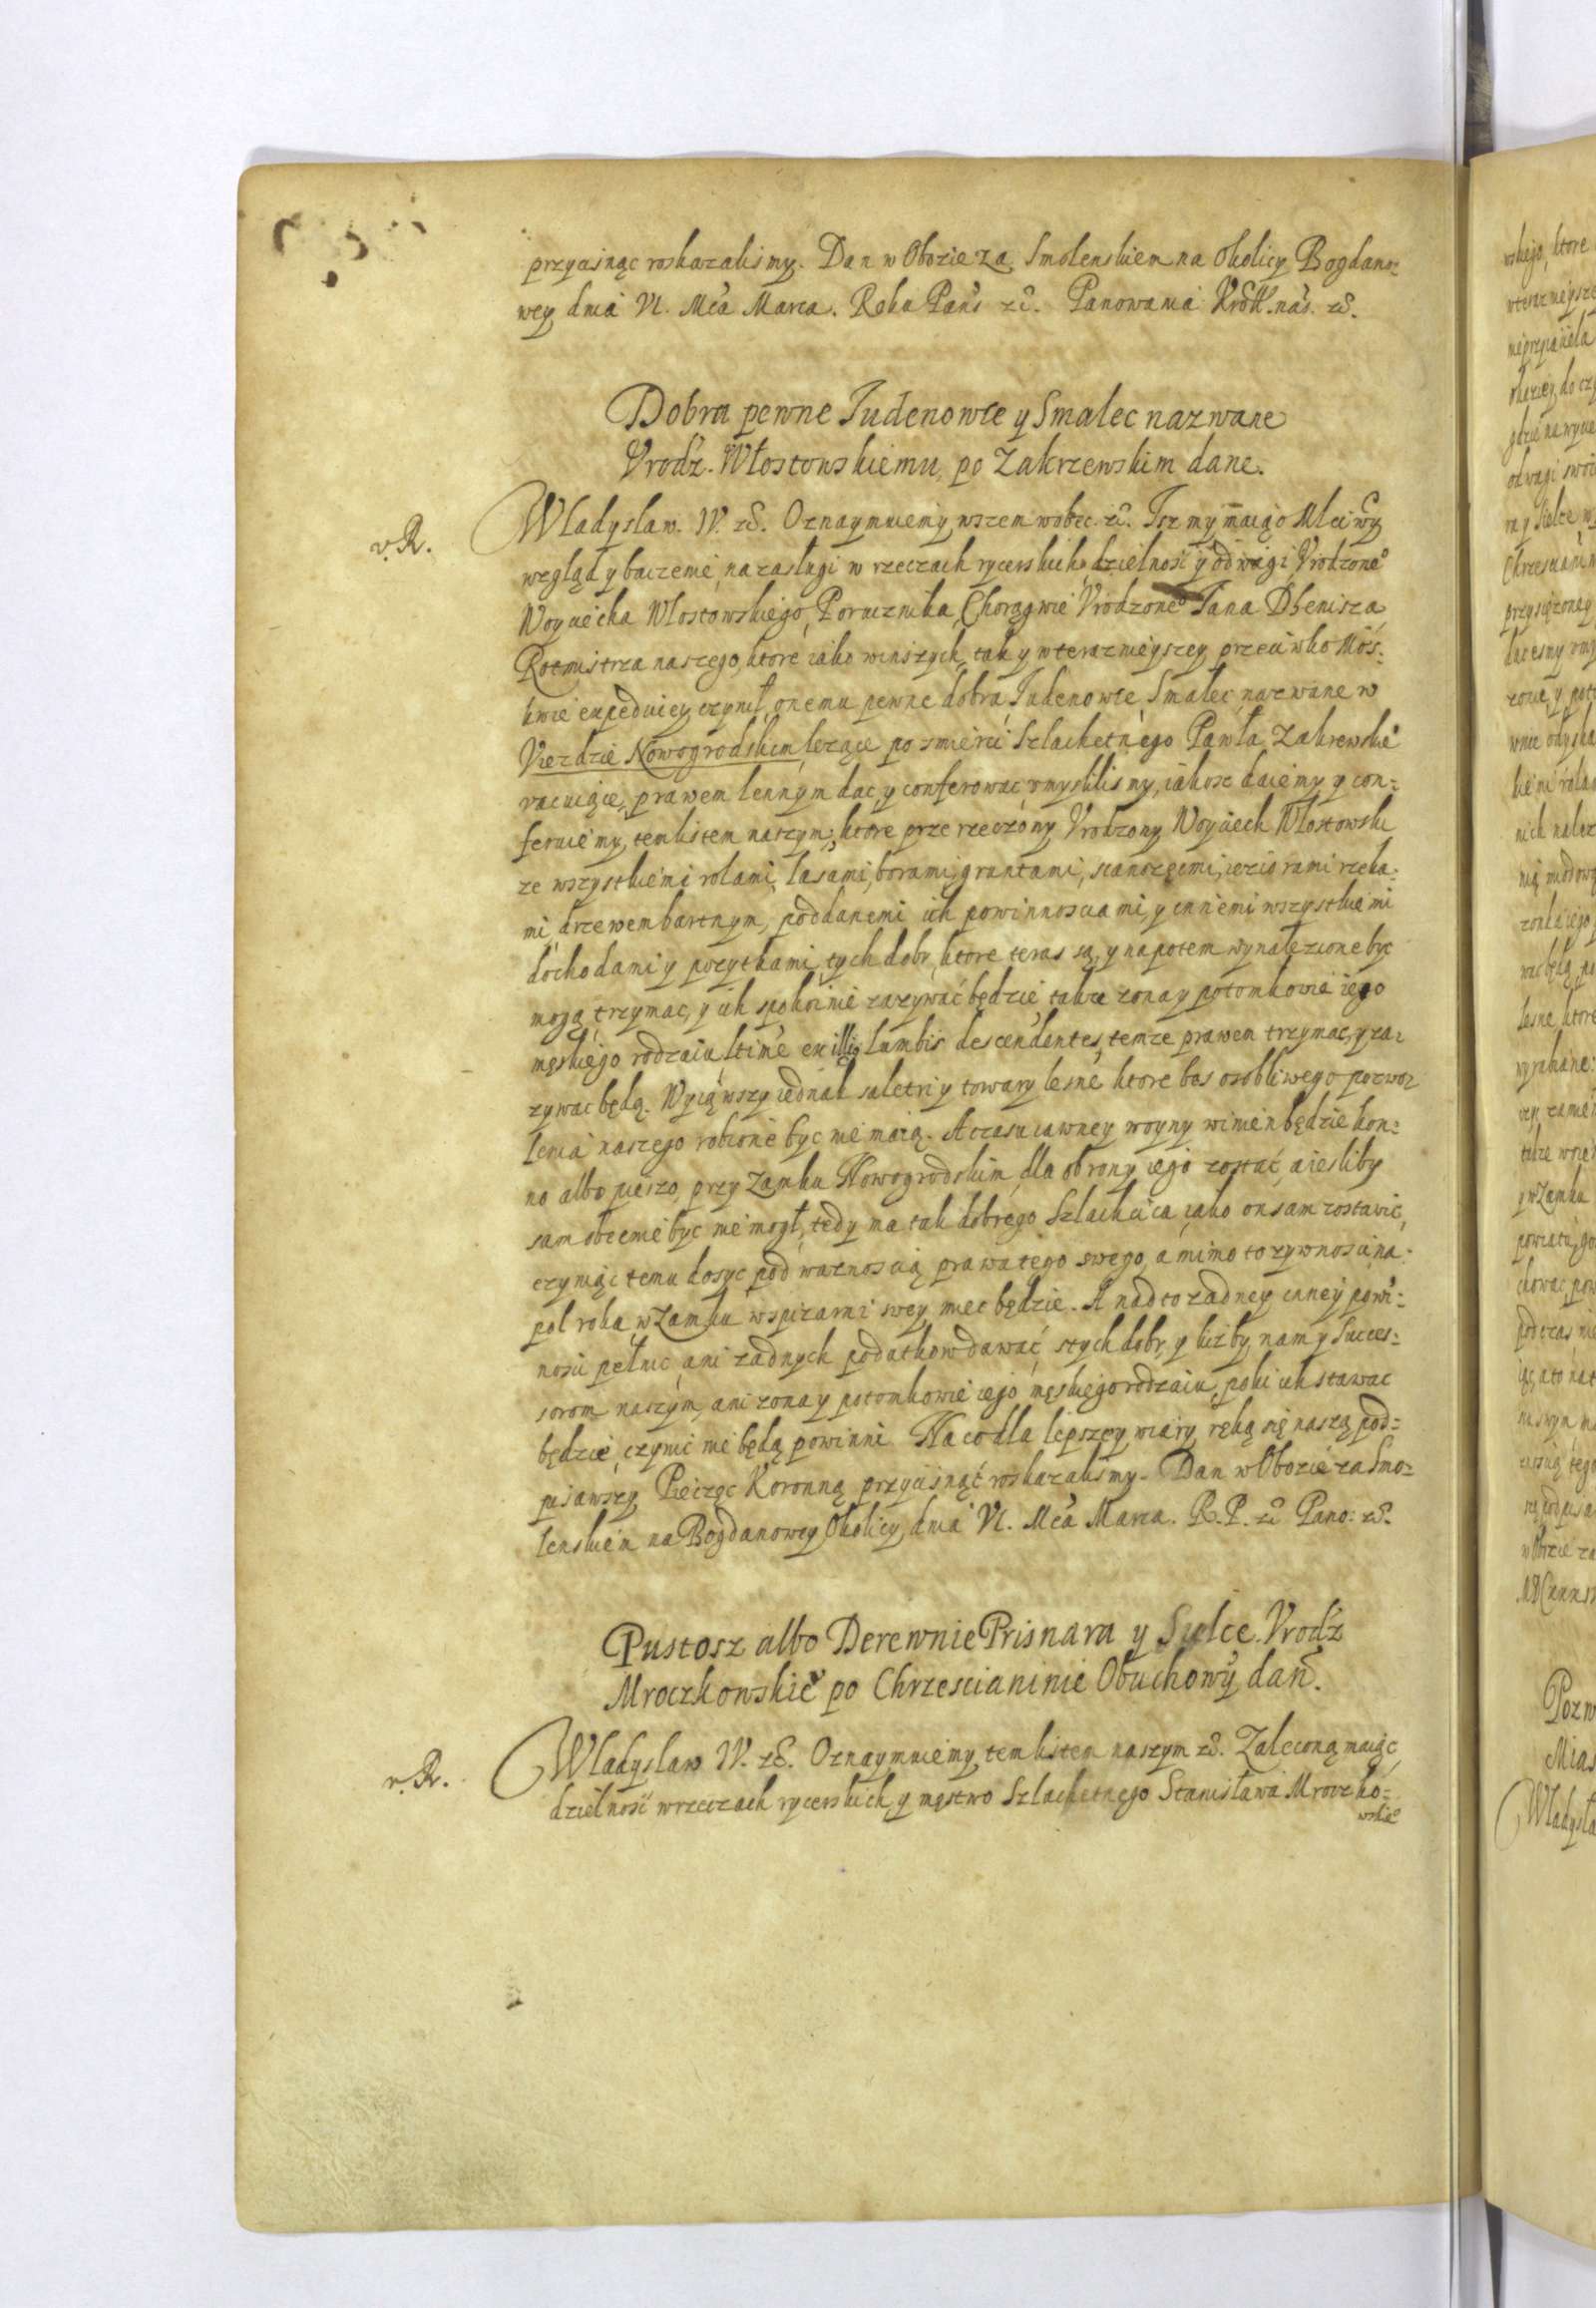 przycisnąc roskazalismy. Dan w Obozie za Smolenskiem na Okolicy Bogdano=
wey dnia VI. Mca Marca. Roku Pans: zc. Panowania Kroll. nas. zc.
Dobra pewne Judenowce y Smalec nazwane
Vrodz. Włostowskiemu po Zakrzewskim dane.
v. R.
Wladyslaw. IV. zc. Oznaymuiemy wszem wobec. zc. Isz my maiąc Mlciwy
wzgląd y baczenie na zasługi w rzeczach rycerskich dzielnosc y odwagi Vrodzone°
Woyciecha Wlostowskiego, Porucznika Chorągwie Vrodzone° Jana Dhenisza
Rotmistrza naszego, ktore iako w inszych, tak y w terazniejszey przeciwko Mos=
kwie expedyciey czynił, onemu pewne dobra Judenowce, Smalec nazwane w
Viezdzie Nowogrodskim lezące po smierci Szlachetnego Pawła Zakrewskie°
vacuiące, prawem lennym dac y conferowac vmyslilismy, iakosz daiemy y con=
feruiemy, tem listem naszym, ktore przerzeczony Vrodzony Woyciech Włostowski
ze wszystkiemi rolami, lasami, borami, gruntami, sianozęcmi, ieziorami rzeka=
mi, drzewem bartnym, poddanemi ich powinnosciami, y innemi wszystkiemi
dochodami y pozytkami, tych dobr, ktore teras są, y napotem wynalezione byc
mogą trzymac, y ich spokoinie zazywac będzie, takze zona y potomkowie iego
męskiego rodzaiu, ltime ex illius lumbis descendentes, temze prawem trzymac, y za=
zywac będą. Wyiąwszy iednak saletri y towary lesne ktore bes osobliwego pozwo=
lenia naszego robione byc nie maią. A czasu iawney woyny winien będzie kon=
no albo pieszo, przy Zamku Nowogrodskim dla obrony iego zostać, a iesliby
sam obecnie byc nie mogł, tedy ma tak dobrego Szlachcica iako on sam zostawic,
czyniąc temu dosyc pod waznoscią prawa tego swego, a mimo to zywnosci na
poł roka w Zamku w spizarni swey miec będzie. A nad to zadney inney powi=
nosci pełnic, ani zadnych podatkow dawać, s tych dobr, y liczby, nam y Succes=
sorom naszym, ani zona y potomkowie iego męskiego rodzaiu, poki ich stawac
będzie, czynic nie będą powinni. Na co dla lepszey wiary, ręką się naszą pod=
pisawszy Pieczęc Koronną przycisnąć roskazalismy. Dan w Obozie za Smo=
lenskiem na Bogdanowey Okolicy, dnia VI. Mca Marca. R. P. zc Pano: zc.
Pustosz albo Derewnie Prisnara y Sielce. Vrodz
Mroczkowskie° po Chrzescianinie Obuchowy dan.
v. R.
Wladyslaw IV. zc. Oznaymuiemy, tem listem naszym zc. Zaleconą maiąc
dzielnosc w rzeczach rycerskich, y męstwo Szlachetnego Stanisława Mroczko=
wskie°